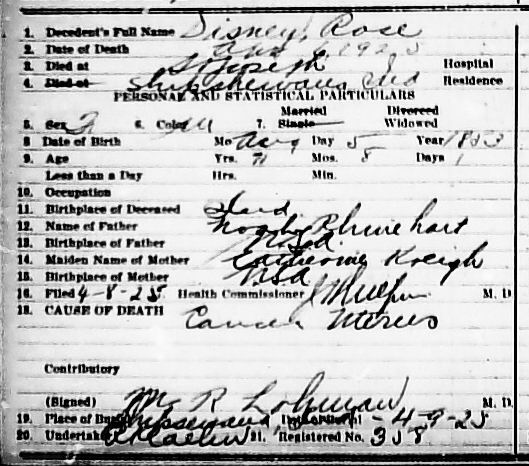 1. Decedent's Full Name Disney, Rose
2. Date of Death 6 1925
3. Died at St Joseph Hospital
4. Died at Shipshewana Ind Residence
PERSONAL AND STATISTICAL PARTICULARS
Married Divorced
5. Sex F 6. Color W 7. Single Widowed
8 Date of Birth Mo Aug Day 5 Year 1853
9. Age Yrs. 71 Mos. 8 Days 1
Less than a Day Hrs. Min.
10. Occupation
11. Birthplace of Deceased Ind
12. Name of Father Noah Rhinehart
13. Birthplace of Father USA
14. Maiden Name of Mother Catherine Kreigh
15. Birthplace of Mother USA
16. Filed 4-8-25 Health Commissioner M. D.
18. CAUSE OF DEATH Cancer Uterus
Contributory
(Signed) Mc R Lohman M. D.
19. Place of Burial Shipshewana, 4-9-25
20. Undertaker 21. Registered No. 358